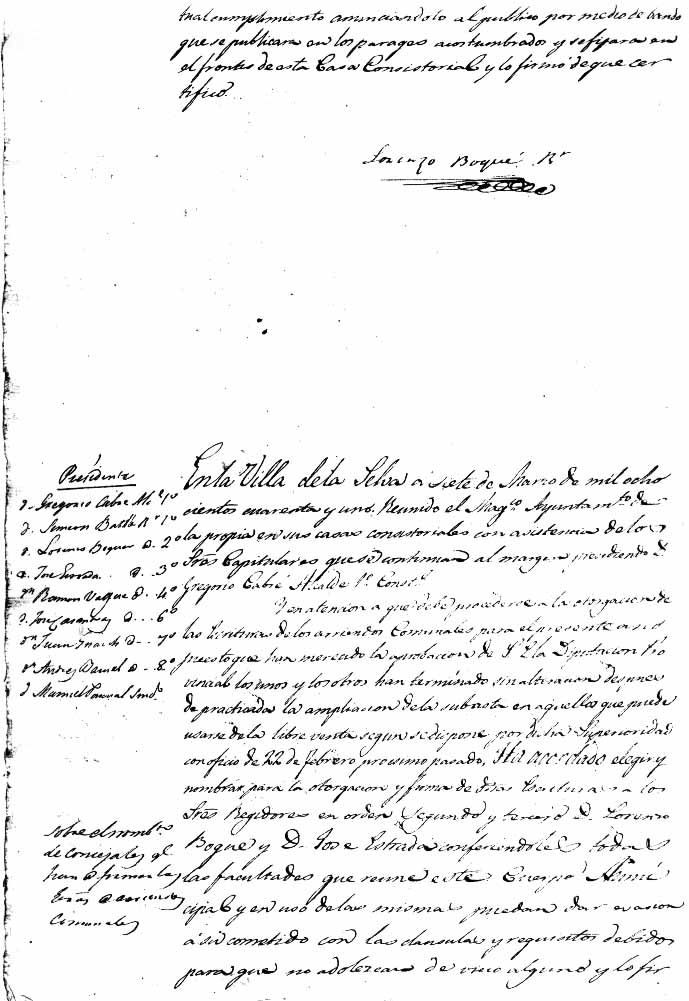 tual cumplimiento anunciandolo al publico por medio de bando
que se publicara en los parages acostumbrados y se fijara en
el frontis de esta Casa Consistorial y lo firmó de que cer
tifico.
Lorenzo Boqué Rr
Presidente
D. Gregorio Cabre Alc. 1º
D. Simeon Batlle Rr 1º
D. Lorenzo Boque d. 2º
D. Jose Estrada d. 3º
Dn Ramon d. 4º
D. d. 6º
Dn Juan d. 7º
Dn Andres d. 8º
D. Manuel Sindo
En la Villa de la Selva á siete de Marzo de mil ocho
cientos cuarenta y uno. Reunido el Magco Ayuntamto de
la propia en sus casas consistoriales con asistencia de los
Sres Capitulares que se continuan al margen presidiendo D.
Gregorio Cabré Alcalde 1º Constl
Y en atencion a que debe procederse a la otorgacion de
las Escrituras de los arriendos Comunales para el presente año
puesto que han merecido la aprobacion de S. E. la Diputacion Pro
vincial los unos y los otros han terminado sin alteracion despues
de practicada la ampliacion de la subasta en aquellos que puede
usarse de la libre venta segun se dispone por dicha Superioridad
con oficio de 22 de febrero procsimo pasado, Ha acordado elegir y
nombrar para la otorgacion y firma de Escrituras a los
Sres Regidores en orden Segundo y tercero D. Lorenzo
Boque y D. Jose Estrada confiriendoles todas
las facultades que reune este Cuerpo Muni
cipal y en uso de las mismas puedan dar evasion
á su cometido con las clausulas y requisitos debidos
para que no adolezcan de vicio alguno y lo fir
Sobre el nombto
de concejales ql
han de firmar las
Esras de arriendos
Comunales